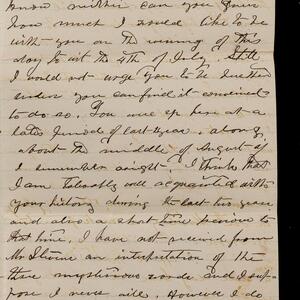 know neither can you guess
how much I would like to be
with you on the evening of this
day to wit the 4th of July, Still
I would not urge you to be
unless you can find it convenient
to do so. You were up here at a
late period of last year, along
about the middle of August if
I remember aright. I think that
I am tolerably well acquainted with
your history during the last two years
and also a short time previous to
that time, I have not received from
Mr an interpretation of the
three mysterious words and I sup-
pose I never will. However I do